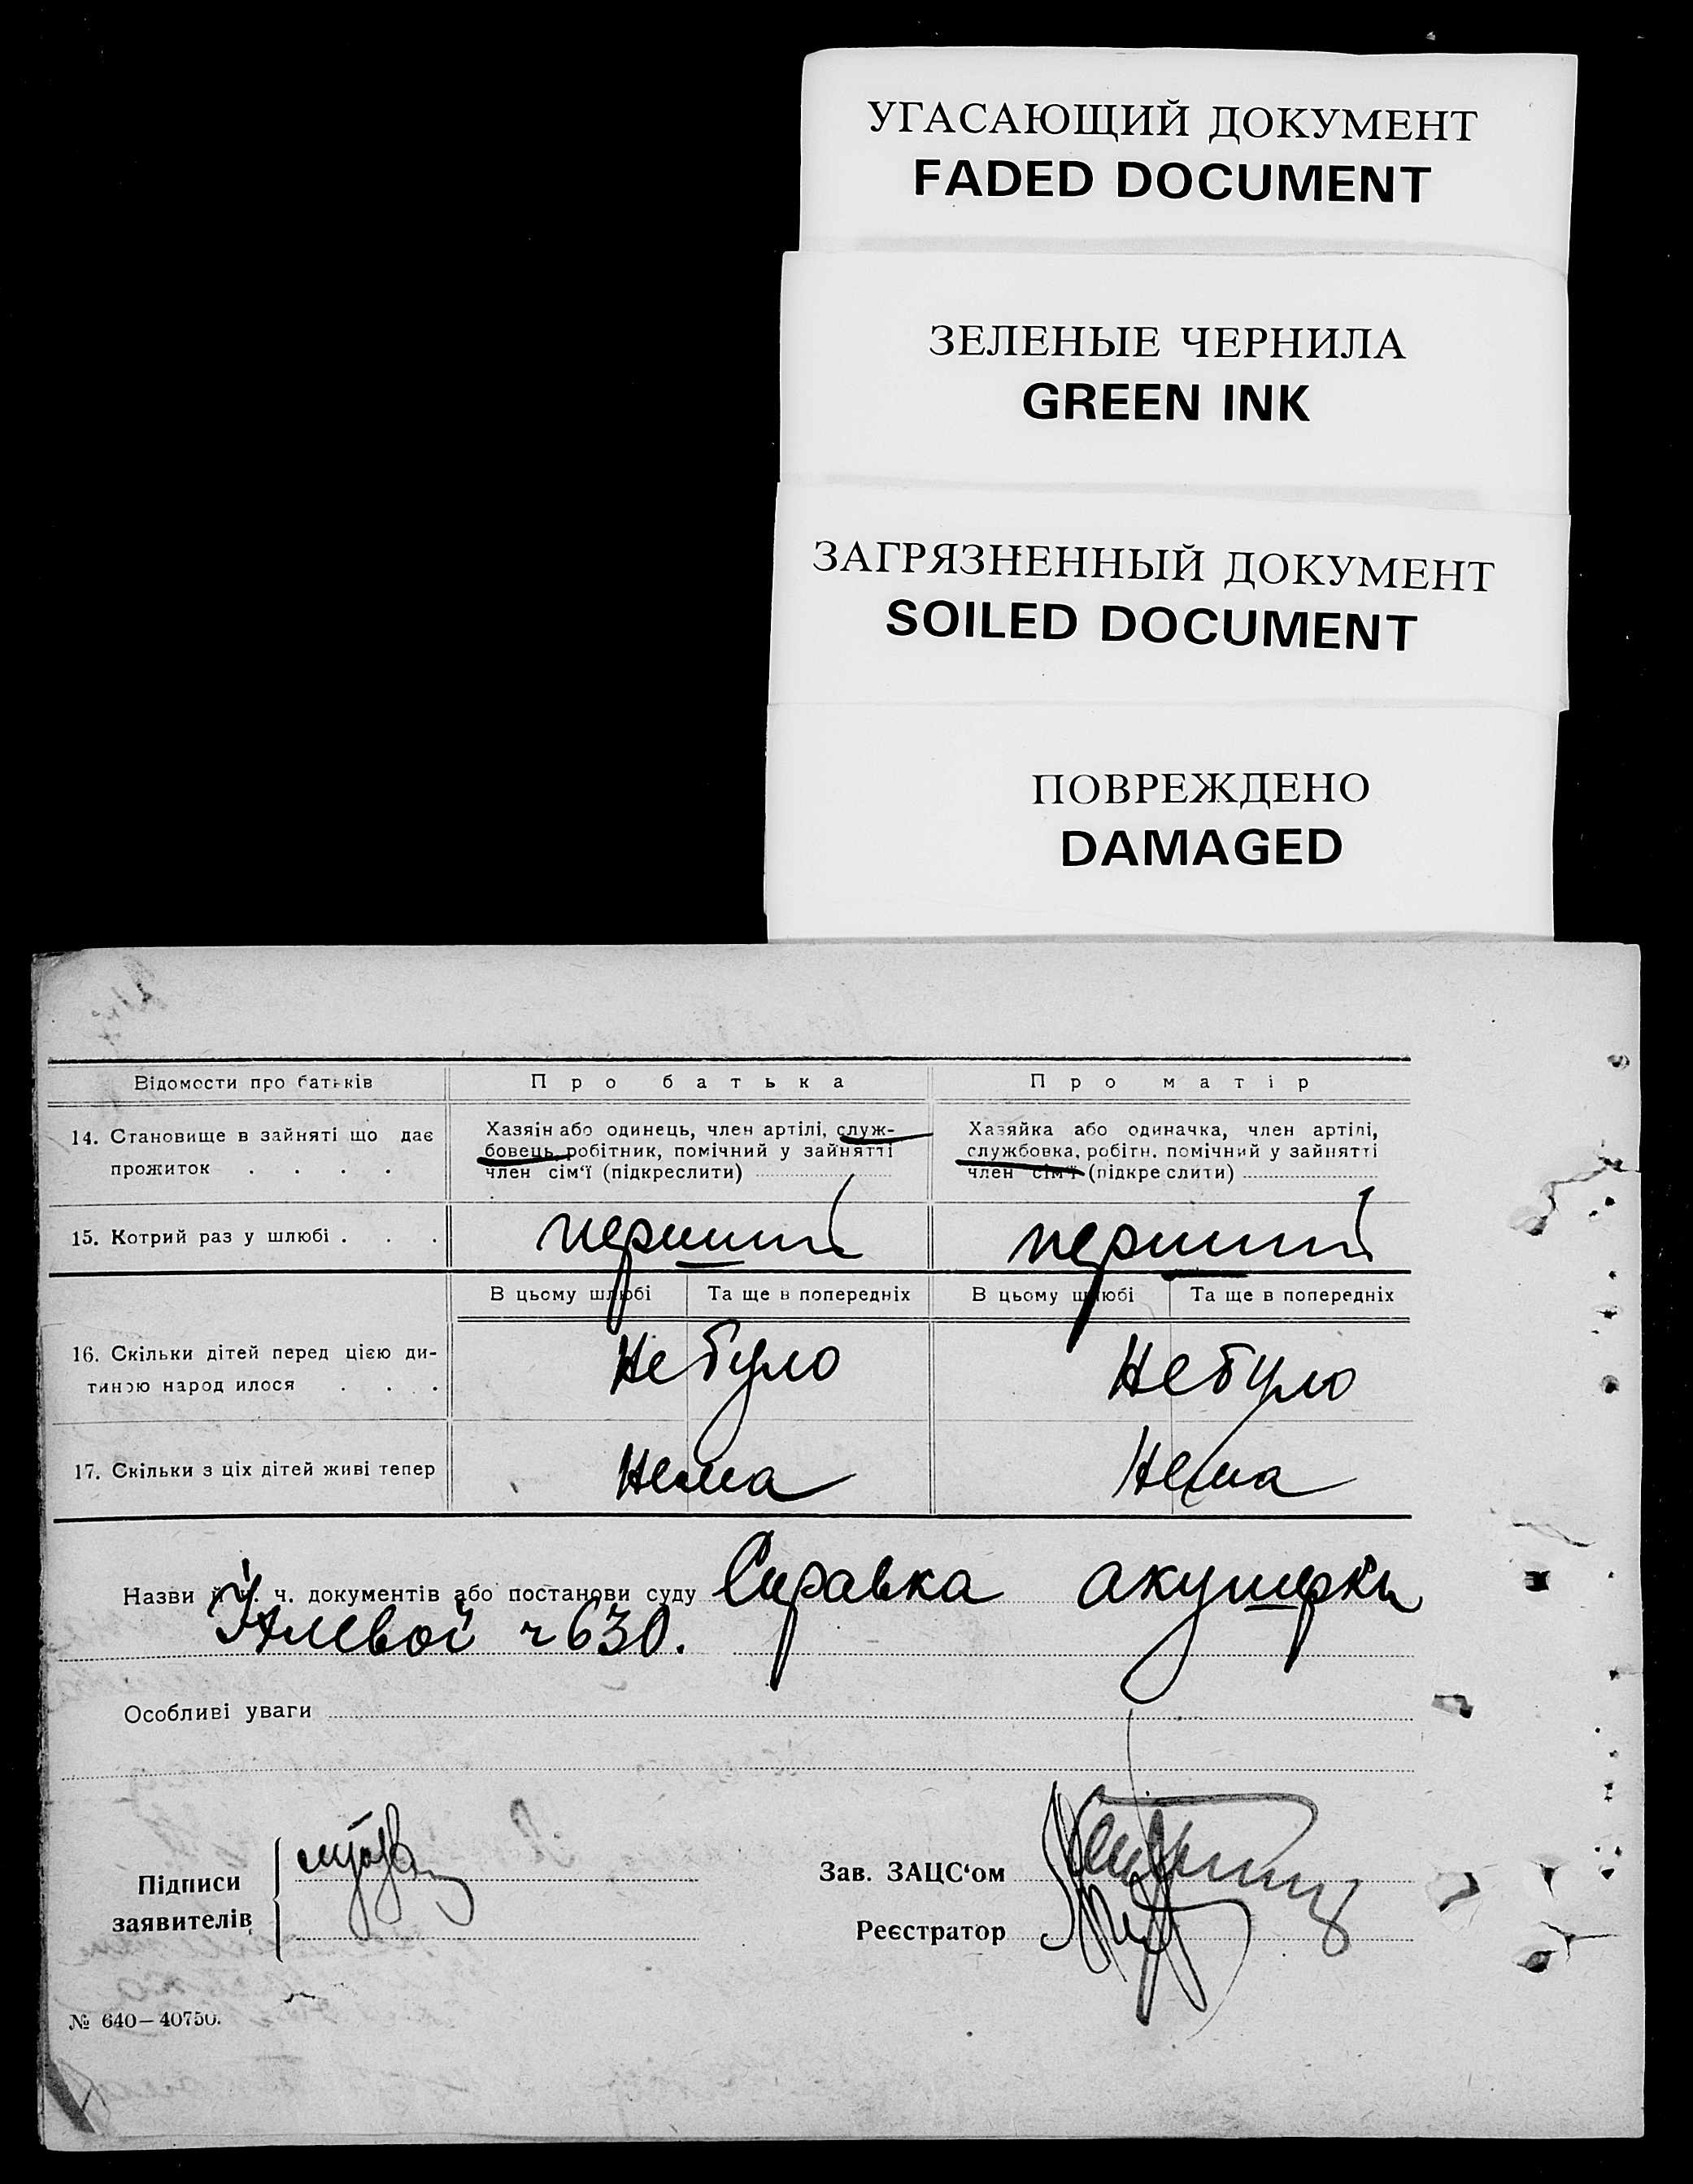 УГАСАЮЩИЙ ДОКУМЕНТ
FADED DOCUMENT
ЗЕЛЕНЫЕ ЧЕРНИЛА
GREEN INK
ЗАГРЯЗНЕННЫЙ ДОКУМЕНТ
SOILED DOCUMENT
ПОВРЕЖДЕНО
DAMAGED
Відомости про батьків
Про батька
Про матір
14. Становище в зайняті що дає
прожиток . . . .
Хазяін або одинець, член артілі, служ-
бовець, робітник, помічний у зайнятті
член сім'ї (підкреслити)
Хазяйка або одиначка, член артілі,
службовка, робітн. помічний у зайнятті
член сім'ї (підкреслити)
15. Котрий раз у шлюбі . . .
перший
перший
В цьому шлюбі
Та ще в попередніх
В цьому шлюбі
Та ще в попередніх
16. Скільки дітей перед цією ди-
тиною народилося . . .
Не було
Не було
17. Скільки з ціх дітей живі тепер
Нема
Нема
Назви й ч. ч. документів або постанови суду Справка акушерки
ч 630.
Особливі уваги
Підписи
заявителів
Зав. ЗАЦС'ом
Реєстратор
№ 640—40750.